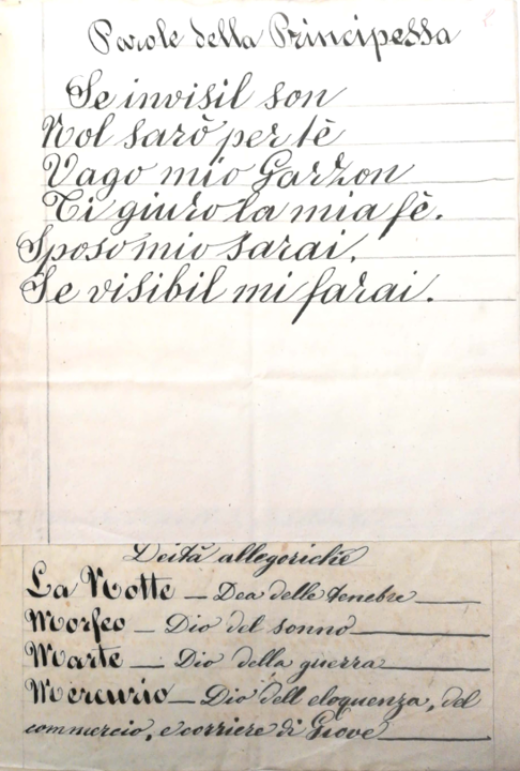 Parole della Principessa
Se invisil son
Nol sarò per tè
Vago mio Garzon
Ti giuro la mia fè.
Sposo mio sarai.
Se visibil mi farai.
Deità allegoriche
La Notte — Dea delle tenebre
Morfeo — Dio del sonno
Marte — Dio della guerra
Mercurio — Dio dell eloquenza, del
commercio, e corriere di Giove